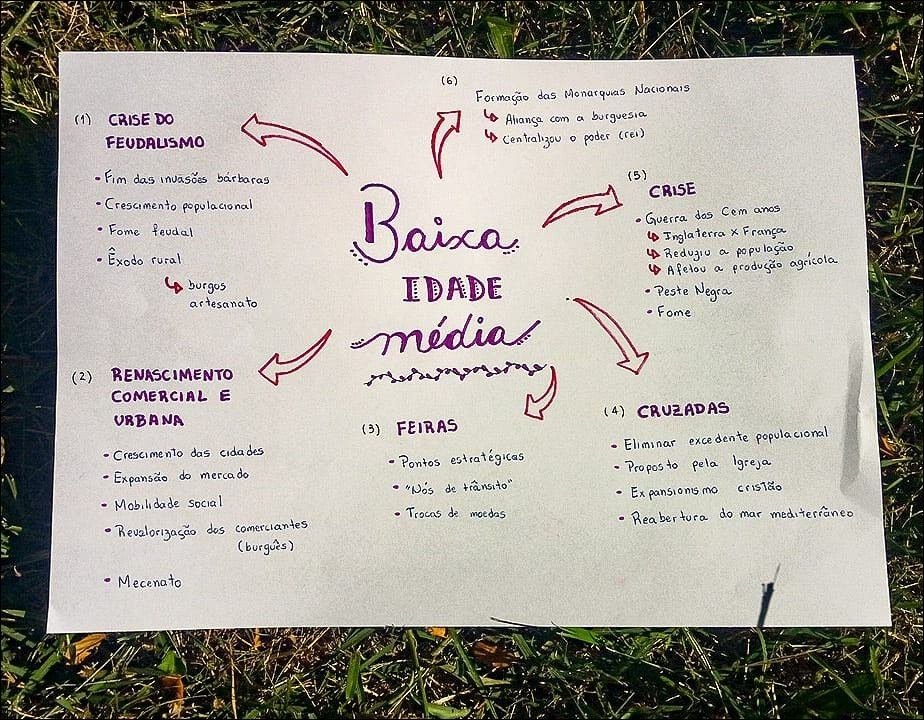 Baixa
IDADE
média
(1) CRISE DO
FEUDALISMO
• Fim das invasões bárbaras
• Crescimento populacional
• Fome feudal
• Êxodo rural
↳ burgos
artesanato
(2) RENASCIMENTO
COMERCIAL E
URBANA
• Crescimento das cidades
• Expansão do mercado
• Mobilidade social
• Revalorização dos comerciantes
(burguês)
• Mecenato
(3) FEIRAS
• Pontos estratégicos
• "Nós de trânsito"
• Trocas de moedas
(4) CRUZADAS
• Eliminar excedente populacional
• Proposto pela Igreja
• Expansionismo cristão
• Reabertura do mar mediterrâneo
(5)
CRISE
• Guerra dos Cem anos
↳ Inglaterra x França
↳ Reduziu a população
↳ Afetou a produção agrícola
• Peste Negra
• Fome
(6)
Formação das Monarquias Nacionais
↳ Aliança com a burguesia
↳ Centralizou o poder (rei)